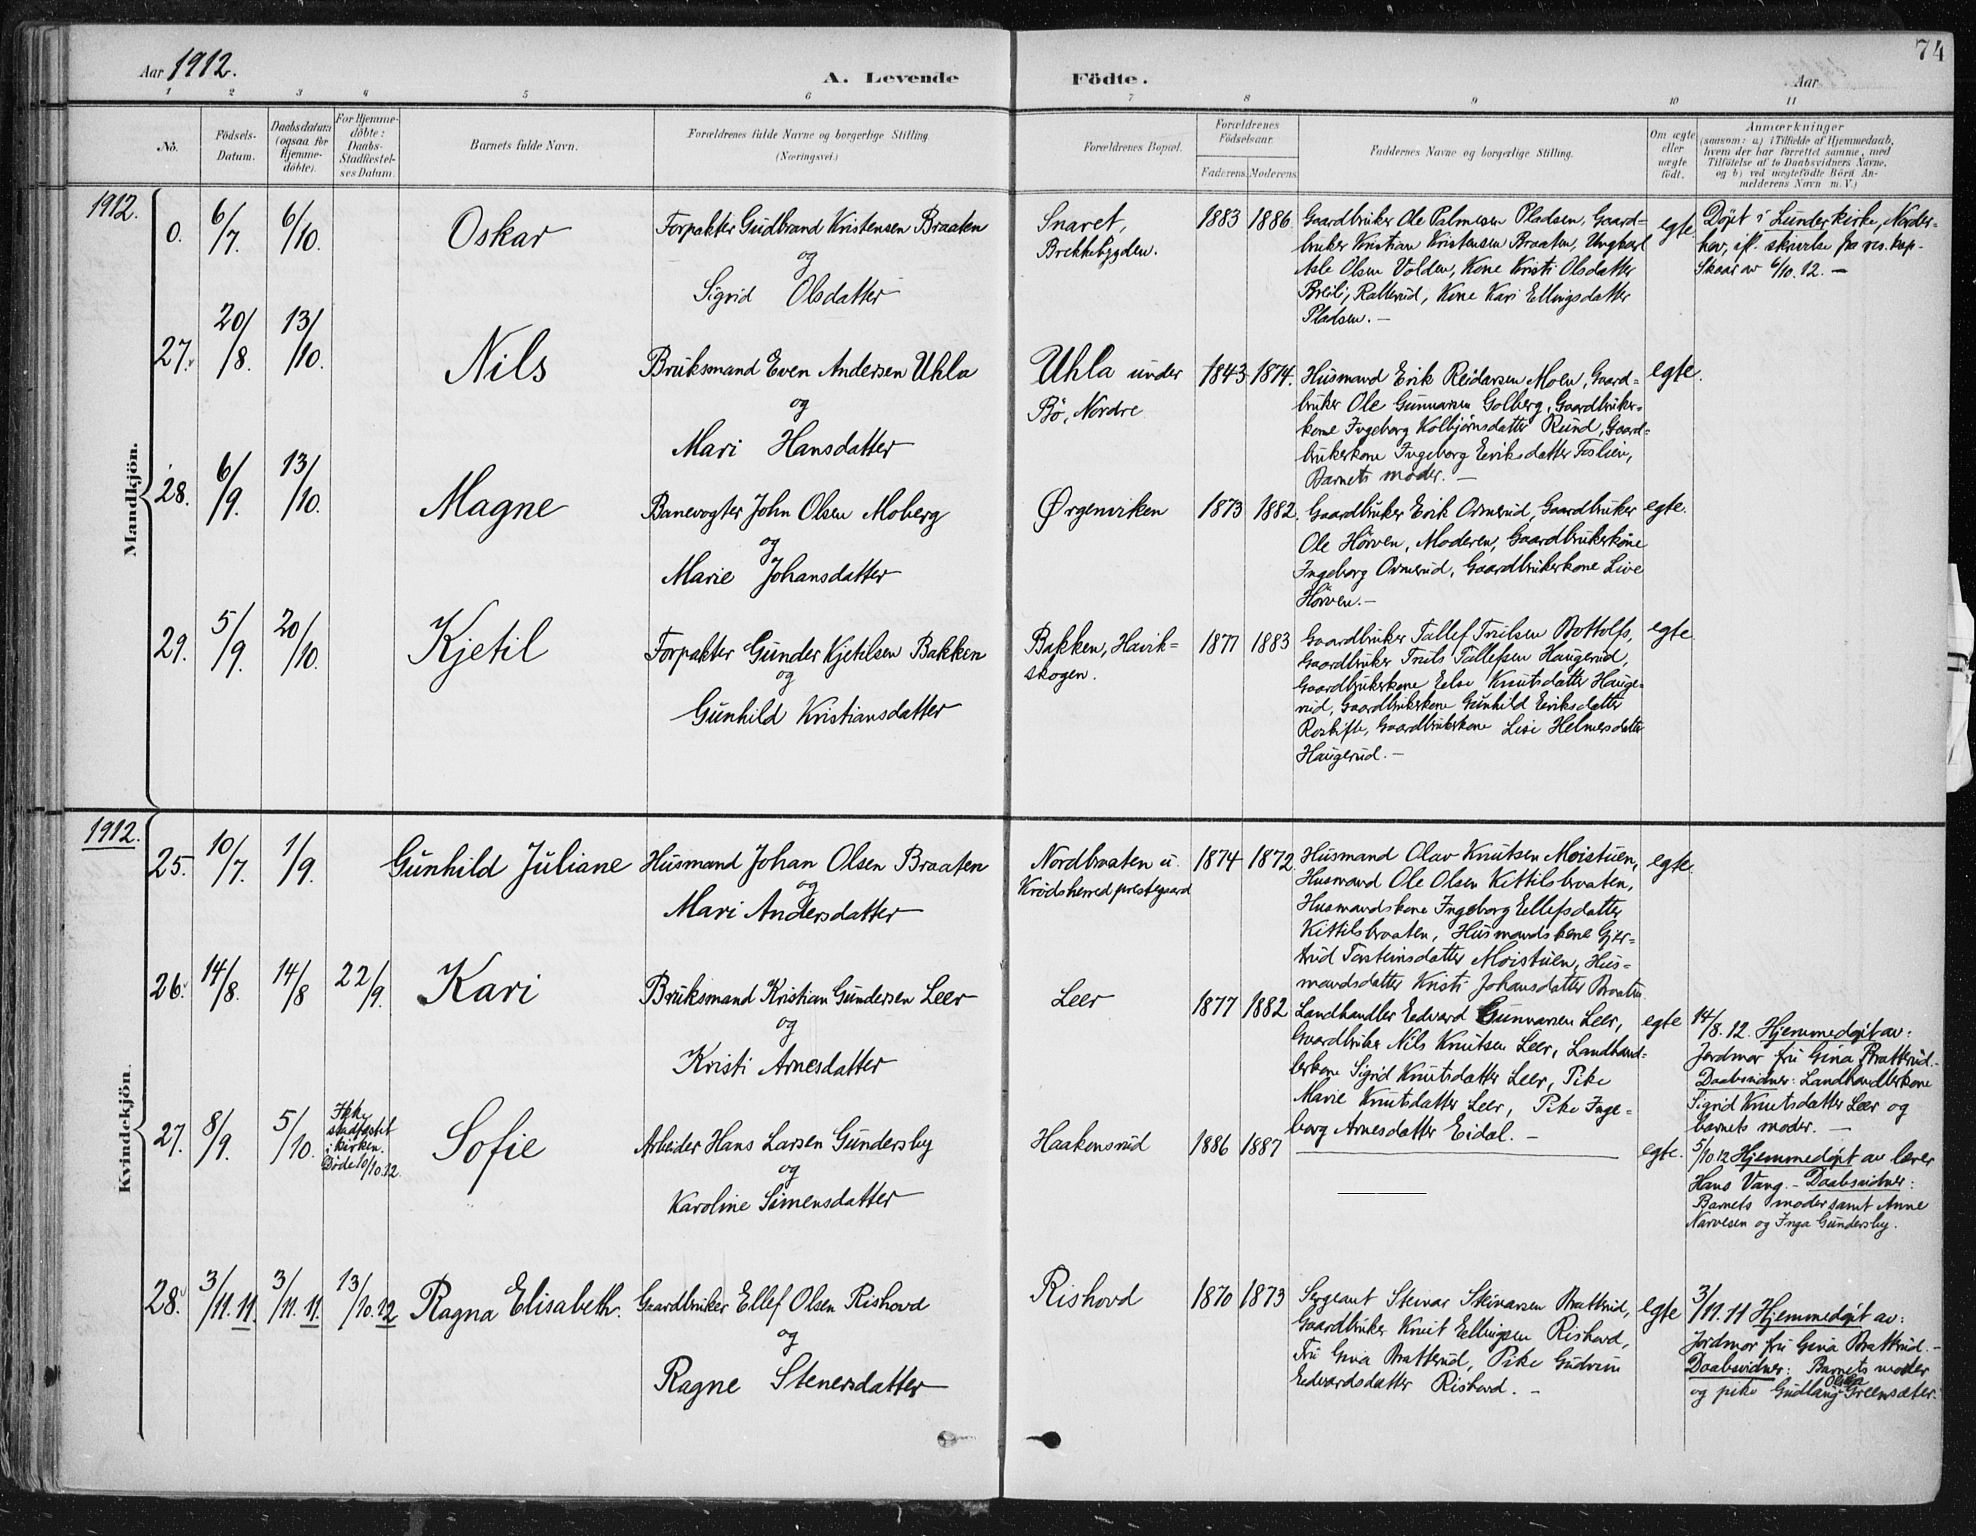 74
Aar 1912.
A. Levende
Födte.
Aar
1 2 3 4 5 6 7 8 9 10 11
No.
Födsels-
Datum.
Daabsdatum
(ogsaa for
Hjemme-
döbte).
For Hjemme-
döbte:
Daabs-
Stadfæstel-
ses Datum.
Barnets fulde Navn.
Forældrenes fulde Navne og borgerlige Stilling.
(Næringsvei.)
Forældrenes Bopæl.
Forældrenes
Födselsaar.
Faderens. Moderens.
Faddernes Navne og borgerlige Stilling.
Om ægte
eller
uægte
födt.
Anmærkninger
(saasom: a) i Tilfælde af Hjemmedaab,
hvem der har forrettet samme, med
Tilföielse af to Daabsvidners Navne,
og b) ved uægtefödte Börn An-
melderens Navn m. V.)
Mandkjön.
1912.
0.
6/7.
6/10.
Oskar
Forpakter Gudbrand Kristensen Braaten
og
Sigrid Olsdatter
Snaret,
Brekkebygden.
1883
1886.
Gaardbruker Ole Palmesen Pladsen, Gaard-
bruker Kristian Kristensen Braaten, Ungkarl
Asle Olsen Volden, Kone Kristi Olsdatter
Breili, Ratterud, Kone Kari Ellingsdatter
Pladsen. -
egte
Døpt i Lunder kirke, Norder-
hov, ifl. skrivelse fra res. kap.
Skaar av 6/10. 12. -
27.
20/8.
13/10.
Nils
Bruksmand Even Andersen Uhla
og
Mari Hansdatter
Uhla under
Bö, Nordre
1843
1874.
Husmand Erik Reidarsen Moen, Gaard-
bruker Ole Gunnarsen Golberg, Gaardbruker-
kone Ingeborg Kolbjörnsdatter Rund, Gaard-
brukerkone Ingeborg Eriksdatter Foslien,
Barnets moder. -
egte.
28.
6/9.
13/10.
Magne
Banevogter John Olsen Moberg
og
Marie Johansdatter
Ørgenviken
1873
1882.
Gaardbruker Erik Ovnerud, Gaardbruker
Ole Hörven, Moderen, Gaardbrukerkone
Ingeborg Ovnerud, Gaardbrukerkone Live
Hörven. -
egte.
29.
5/9.
20/10.
Kjetil
Forpakter Gunder Kjetilsen Bakken
og
Gunhild Kristiansdatter
Bakken, Havik-
skogen.
1877
1883
Gaardbruker Tallef Trulsen Bottolfs,
Gaardbruker Truls Tallefsen Haugerud,
Gaardbrukerkone Else Knutsdatter Hauge-
rud, Gaardbrukerkone Gunhild Eriksdatter
Roskifte, Gaardbrukerkone Lise Helmersdatter
Haugerud. -
egte
Kvindekjön.
1912.
25.
10/7.
1/9.
Gunhild Juliane
Husmand Johan Olsen Braaten
og
Mari Andersdatter
Nordbraaten u.
Krödsherred prestegaard
1874
1872.
Husmand Olav Knutsen Moistuen,
Husmand Ole Olsen Kittilsbraaten,
Husmandskone Ingeborg Ellefsdatter
Kittilsbraaten, Husmandskone Gjer-
trud Torsteinsdatter Moistuen, Hus-
mandsdatter Kristi Johansdatter Braaten
egte.
26.
14/8.
14/8
22/9.
Kari
Bruksmand Kristian Gundersen Leer
og
Kristi Arnesdatter
Leer
1877
1882
Landhandler Edvard Gunnarsen Leer,
Gaardbruker Nils Knutsen Leer, Landhand-
lerkone Sigrid Knutsdatter Leer, Pike
Marie Knutsdatter Leer, Pike Inge-
borg Arnesdatter Eidal. -
egte
14/8. 12. Hjemmedøpt av:
Jordmor fru Gina Bratterud. -
Daabsvidner: Landhandlerkone
Sigrid Knutsdatter Leer og
barnets moder. -
27.
8/9.
5/10.
Ikke
stadfæstet
i kirken.
Döde 10/10.12.
Sofie
Arbeider Hans Larsen Gundersby
og
Karoline Simensdatter
Haakonsrud
1886
1887
egte.
5/10.12 Hjemmedøpt av lærer
Hans Vang. - Daabsvidner:
Barnets moder samt Anne
Narvesen og Inga Gundersby.
28.
3/11.11.
3/11.11.
13/10.12
Ragna Elisabeth.
Gaardbruker Ellef Olsen Rishovd
og
Ragne Stenersdatter
Rishovd
1870
1873
Sergeant Steinar Steinarsen Bratterud,
Gaardbruker Knut Ellingsen Rishovd,
Fru Gina Bratterud, Pike Gudrun
Edvardsdatter Rishovd. -
egte
3/11.11 Hjemmedøpt av:
Jordmor fru Gina Bratterud. -
Daabsvidner: Barnets moder
og pike Gudlaug Olsen Greensæter.